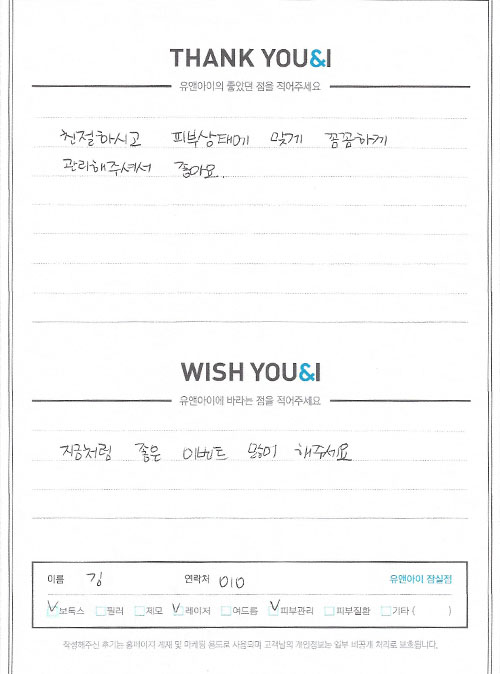 THANK YOU&I
유앤아이의 좋았던 점을 적어주세요
친절하시고 피부상태에 맞게 꼼꼼하게
관리해주셔서 좋아요.
WISH YOU&I
유앤아이에 바라는 점을 적어주세요
지금처럼 좋은 이벤트 많이 해주세요
이름 김 연락처 010 유앤아이 잠실점
보톡스 필러 제모 레이저 여드름 피부관리 피부질환 기타 ( )
작성해주신 후기는 홈페이지 게재 및 마케팅 용도로 사용되며 고객님의 개인정보는 일부 비공개 처리로 보호됩니다.